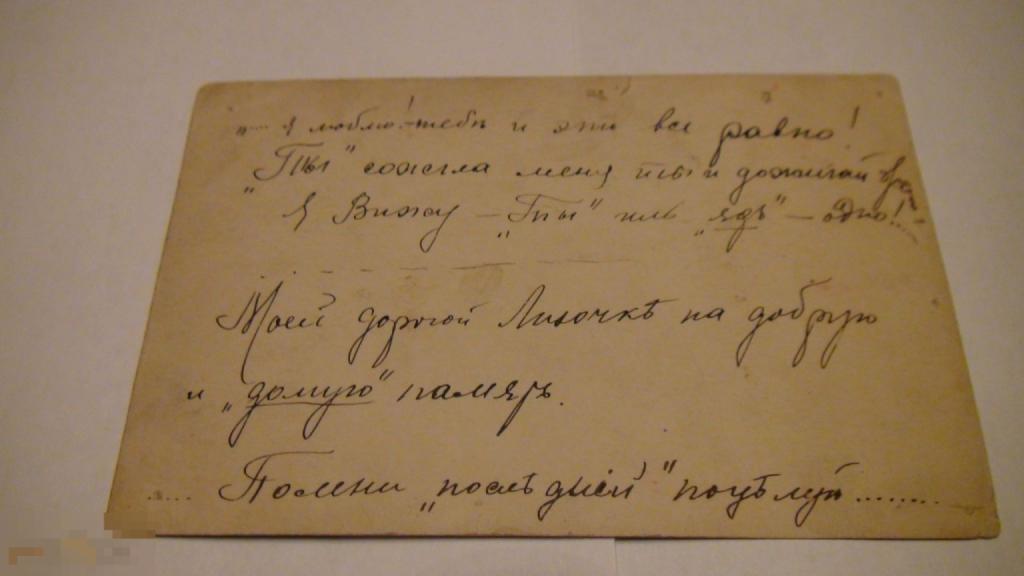 „.... я люблю! тебя и это все равно!
„Ты" сожгла меня ты и дожигай
Я Вижу — „Ты" иль „ядъ" — одно!....
Моей дорогой Лизочкѣ на добрую
и „долгую" память.
..... Помни „послѣдній" поцѣлуй........